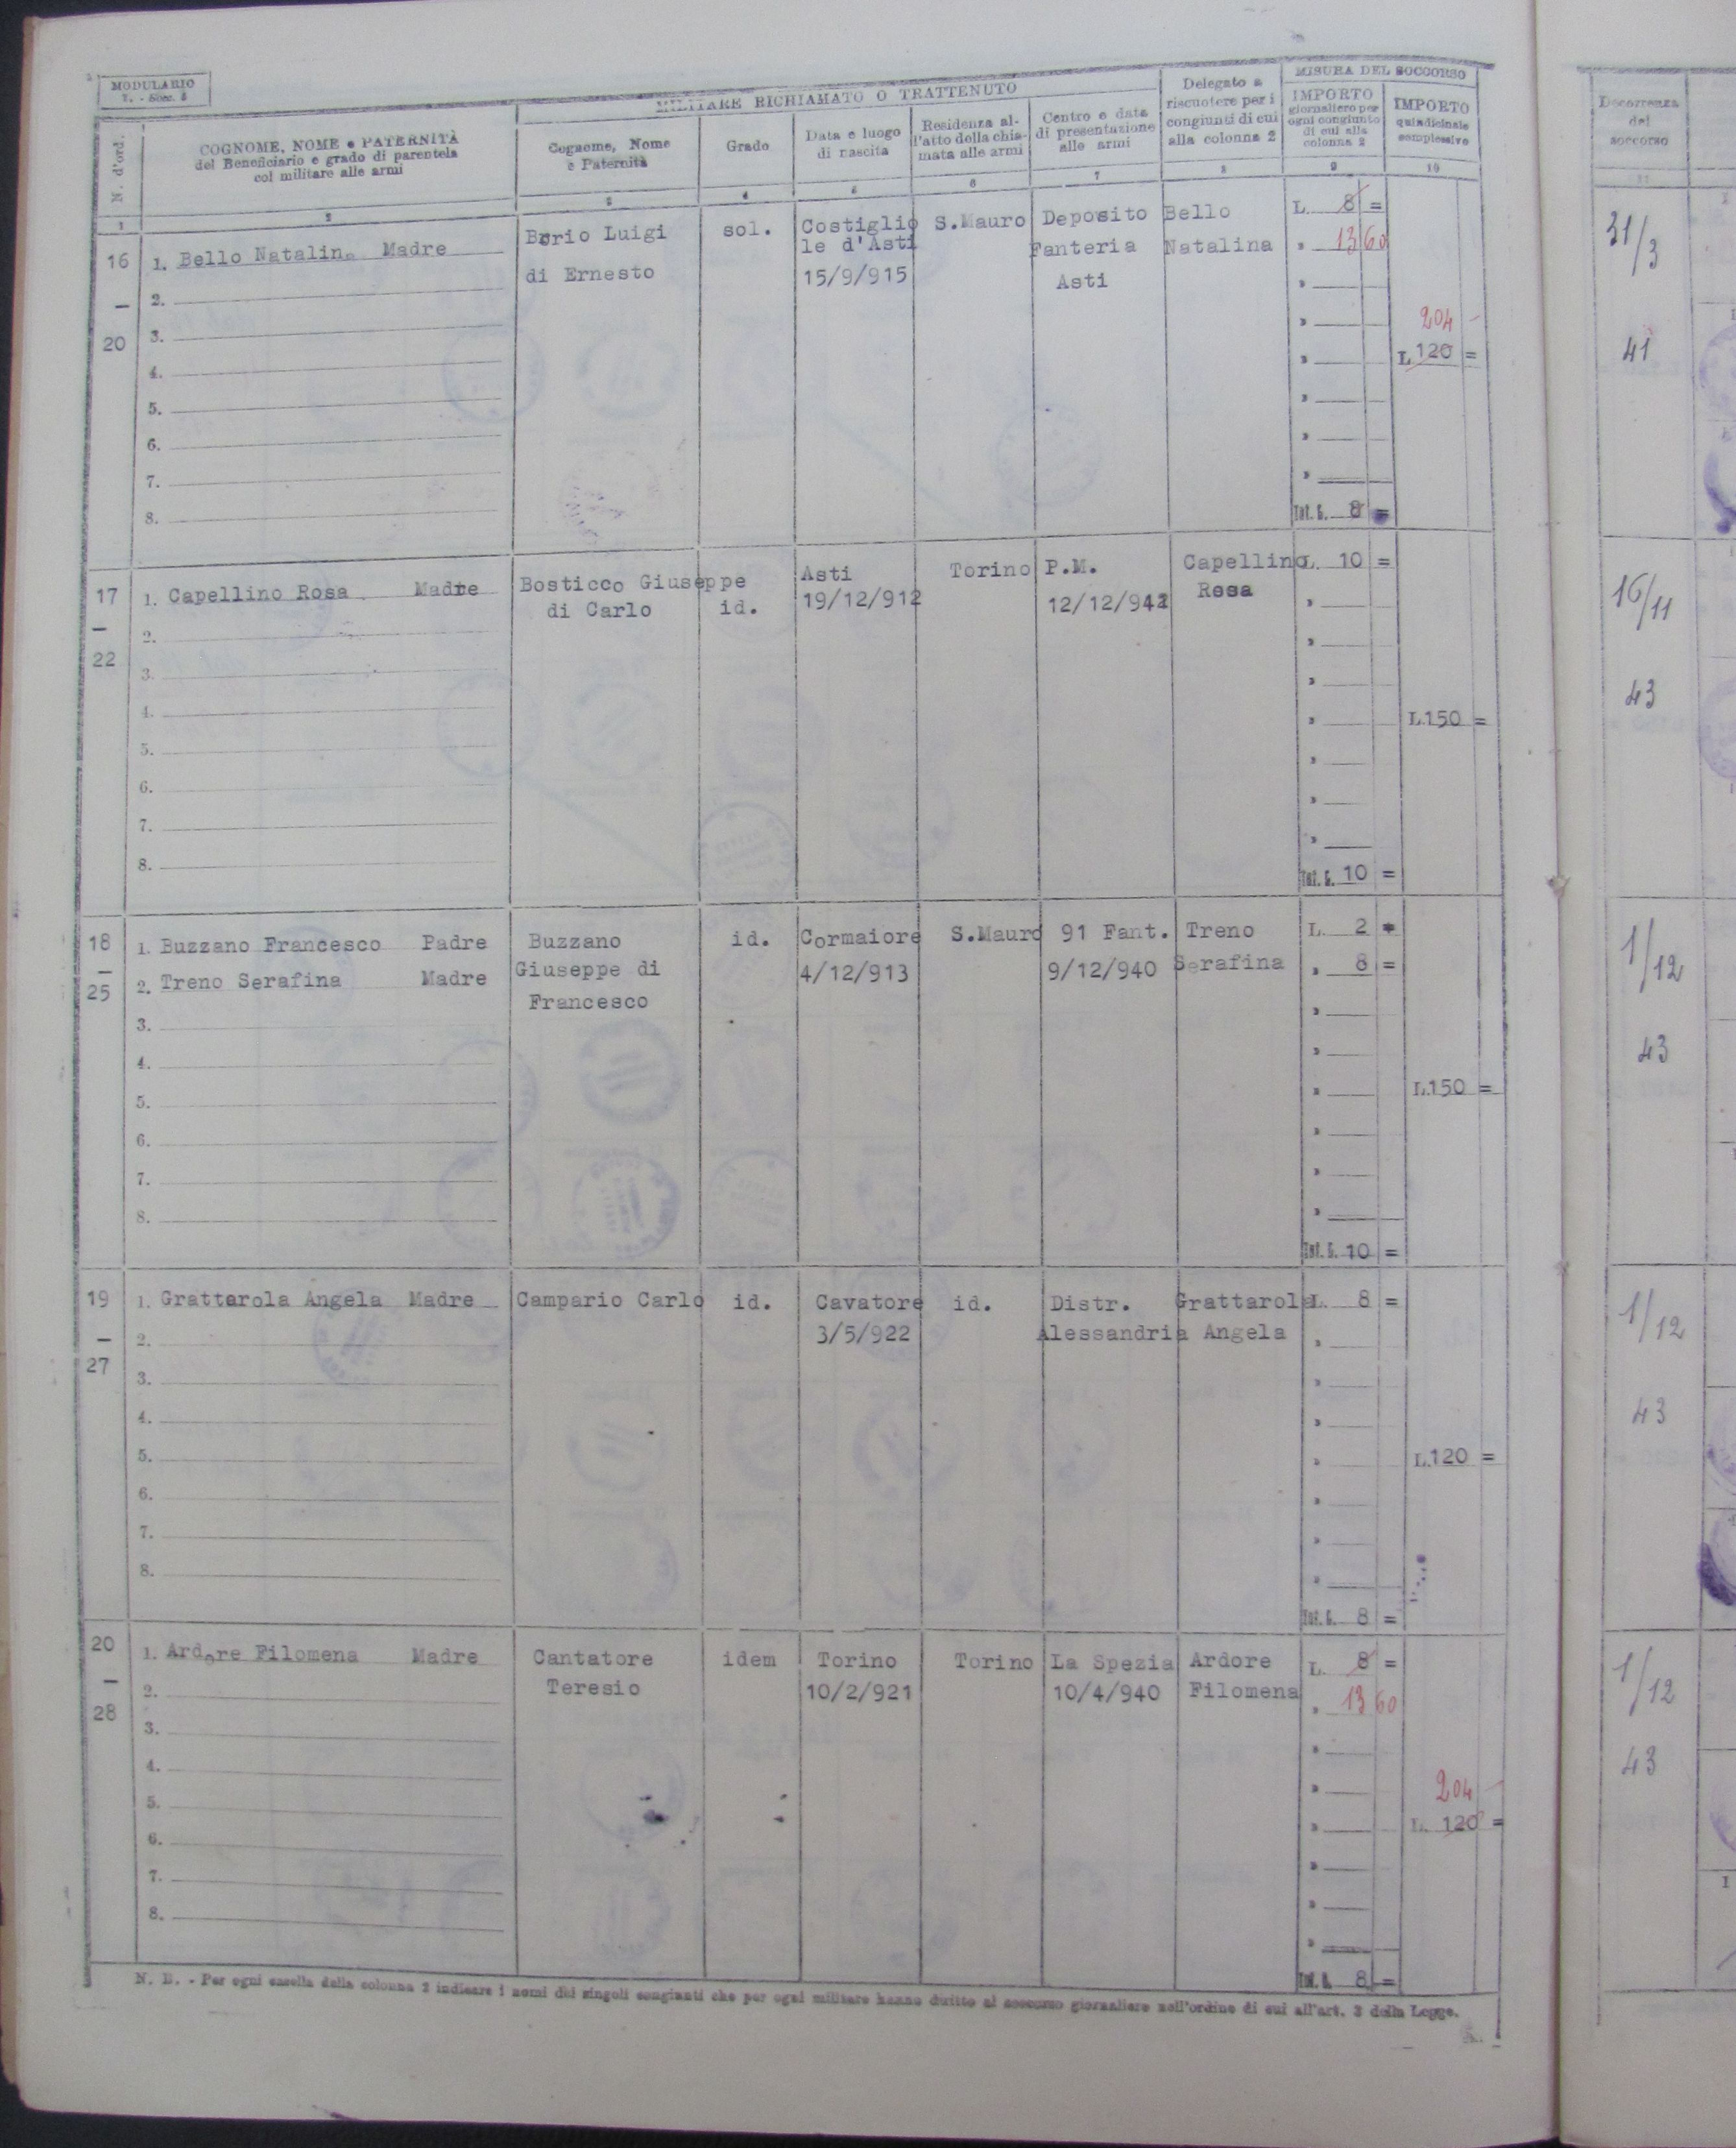 MODULARIO
COGNOME, NOME e PATERNITÀ
del Beneficiario e grado di parentela
col militare alle armi
N. d'ord.
MILITARE RICHIAMATO O TRATTENUTO
Cognome, Nome
e Paternità
Grado
Data e luogo
di nascita
Residenza al-
l'atto della chia-
mata alle armi
Centro e data
di presentazione
alle armi
Delegato a
riscuotere per i
congiunti di cui
alla colonna 2
MISURA DEL SOCCORSO
IMPORTO
giornaliero per
ogni congiunto
di cui alla
colonna 2
IMPORTO
quindicinale
complessivo
Decorrenza
del
soccorso
1 2 3 4 5 6 7 8 9 10
16
—
20
1. Bello Natalina Madre
2.
3.
4.
5.
6.
7.
8.
Borio Luigi
di Ernesto
sol.
Costiglio
le d'Asti
15/9/915
S.Mauro
Deposito
Fanteria
Asti
Bello
Natalina
L. 8 =
13 60
204 -
L 120 =
Tot. G. 8 =
31/3
41
17
—
22
1. Capellino Rosa Madre
2.
3.
4.
5.
6.
7.
8.
Bosticco Giuseppe
di Carlo
id.
Asti
19/12/912
Torino
P.M.
Capellino
Rosa
L. 10 =
L.150 =
Tot. G. 10 =
16/11
43
18
—
25
1. Buzzano Francesco Padre
2. Treno Serafina Madre
3.
4.
5.
6.
7.
8.
Buzzano
Giuseppe di
Francesco
id.
Cormaiore
4/12/913
S.Mauro
91 Fant.
9/12/940
Treno
Serafina
L. 2 =
8 =
L.150 =
Tot. G. 10 =
1/12
43
19
—
27
1. Grattarola Angela Madre
2.
3.
4.
5.
6.
7.
8.
Campario Carlo
id.
Cavatore
3/5/922
id.
Distr.
Alessandria
Grattarola
Angela
L. 8 =
L.120 =
Tot. G. 8 =
1/12
43
20
—
28
1. Ardore Filomena Madre
2.
3.
4.
5.
6.
7.
8.
Cantatore
Teresio
idem
Torino
10/2/921
Torino
La Spezia
10/4/940
Ardore
Filomena
L. 8 =
13 60
204 -
L. 120 =
Tot. G. 8 =
1/12
43
N. B. - Per ogni casella della colonna 2 indicare i nomi dei singoli congiunti che per ogni militare hanno diritto al soccorso giornaliero nell'ordine di cui all'art. 3 della Legge.